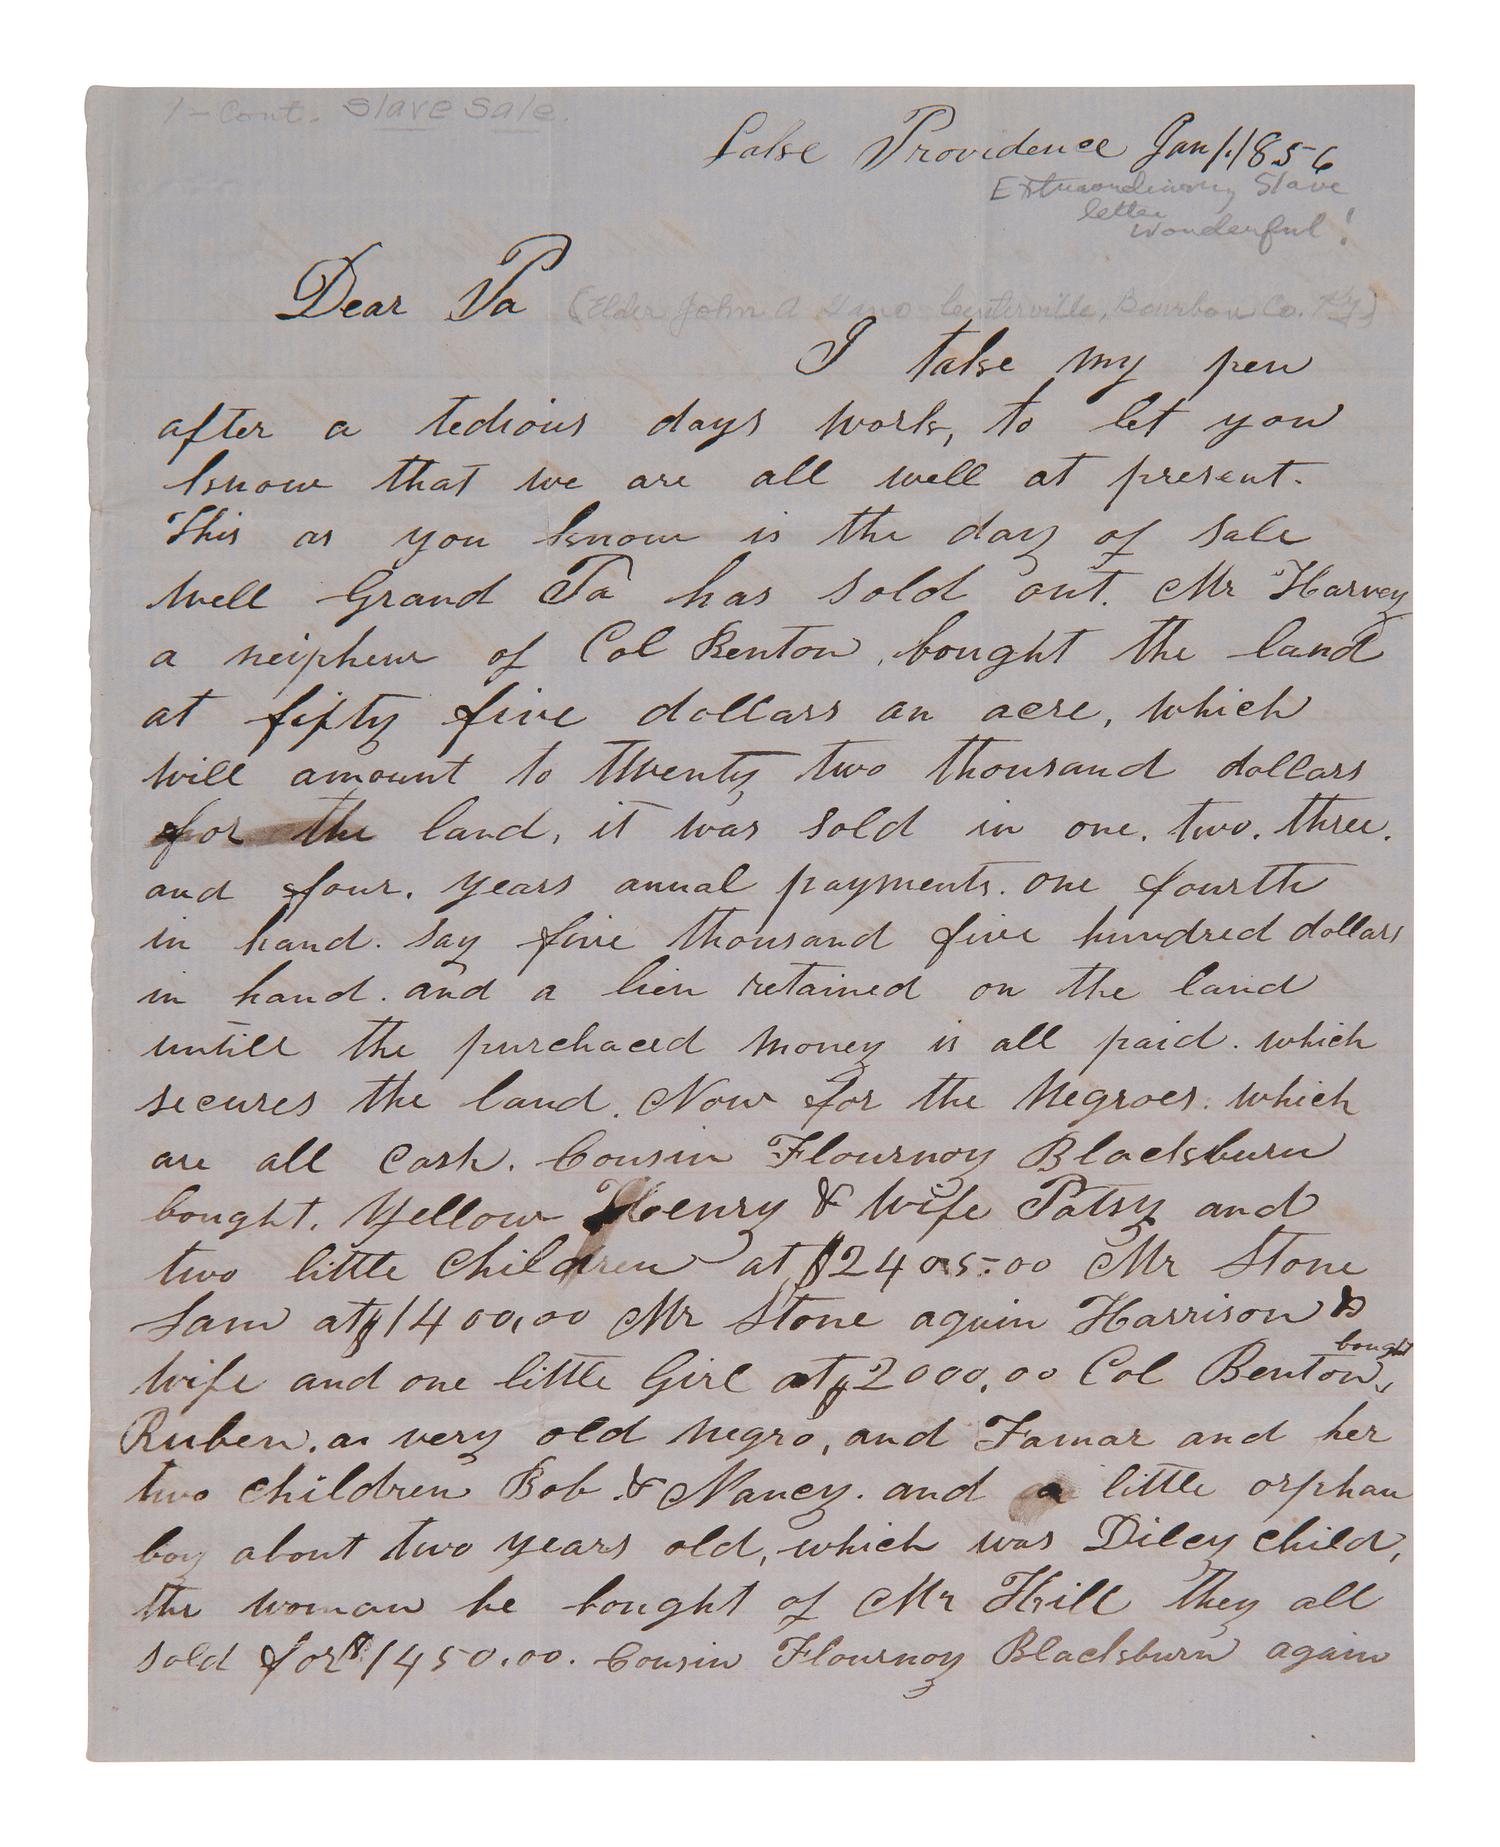 1 - Cont. Slave Sale.
Lake Providence Jan 1. 1856
Extraordinary Slave
letter
Wonderful!
Dear Pa (Elder John A Gano Centerville, Bourbon Co. Ky)
I take my pen
after a tedious days work, to let you
know that we are all well at present.
This as you know is the day of sale
Well Grand Pa has sold out. Mr Harvey
a neiphew of Col Benton, bought the land
at fifty five dollars an acre, which
will amount to twenty two thousand dollars
for the land, it was sold in one. two. three.
and four. years anual payments. one fourth
in hand. say five thousand five hundred dollars
in hand. and a lien retained on the land
untill the purchaced money is all paid. which
secures the land. Now for the Negroes. which
are all cash. Cousin Flournoy Blackburn
bought. Yellow Henry & wife Patsy and
two little children at $2405.00 Mr Stone
Sam at $1400,00 Mr Stone again Harrison &
wife and one little Girl at $2000,00 Col Benton, bought
Ruben, a very old negro, and Tamar and her
two children Bob & Nancy. and a little orphan
boy about two years old, which was Dilcy child,
the woman he bought of Mr Hill they all
sold for $1450.00. Cousin Flournoy Blackburn again